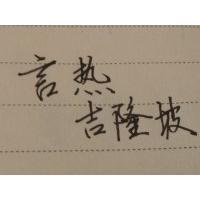 言热
吉隆坡